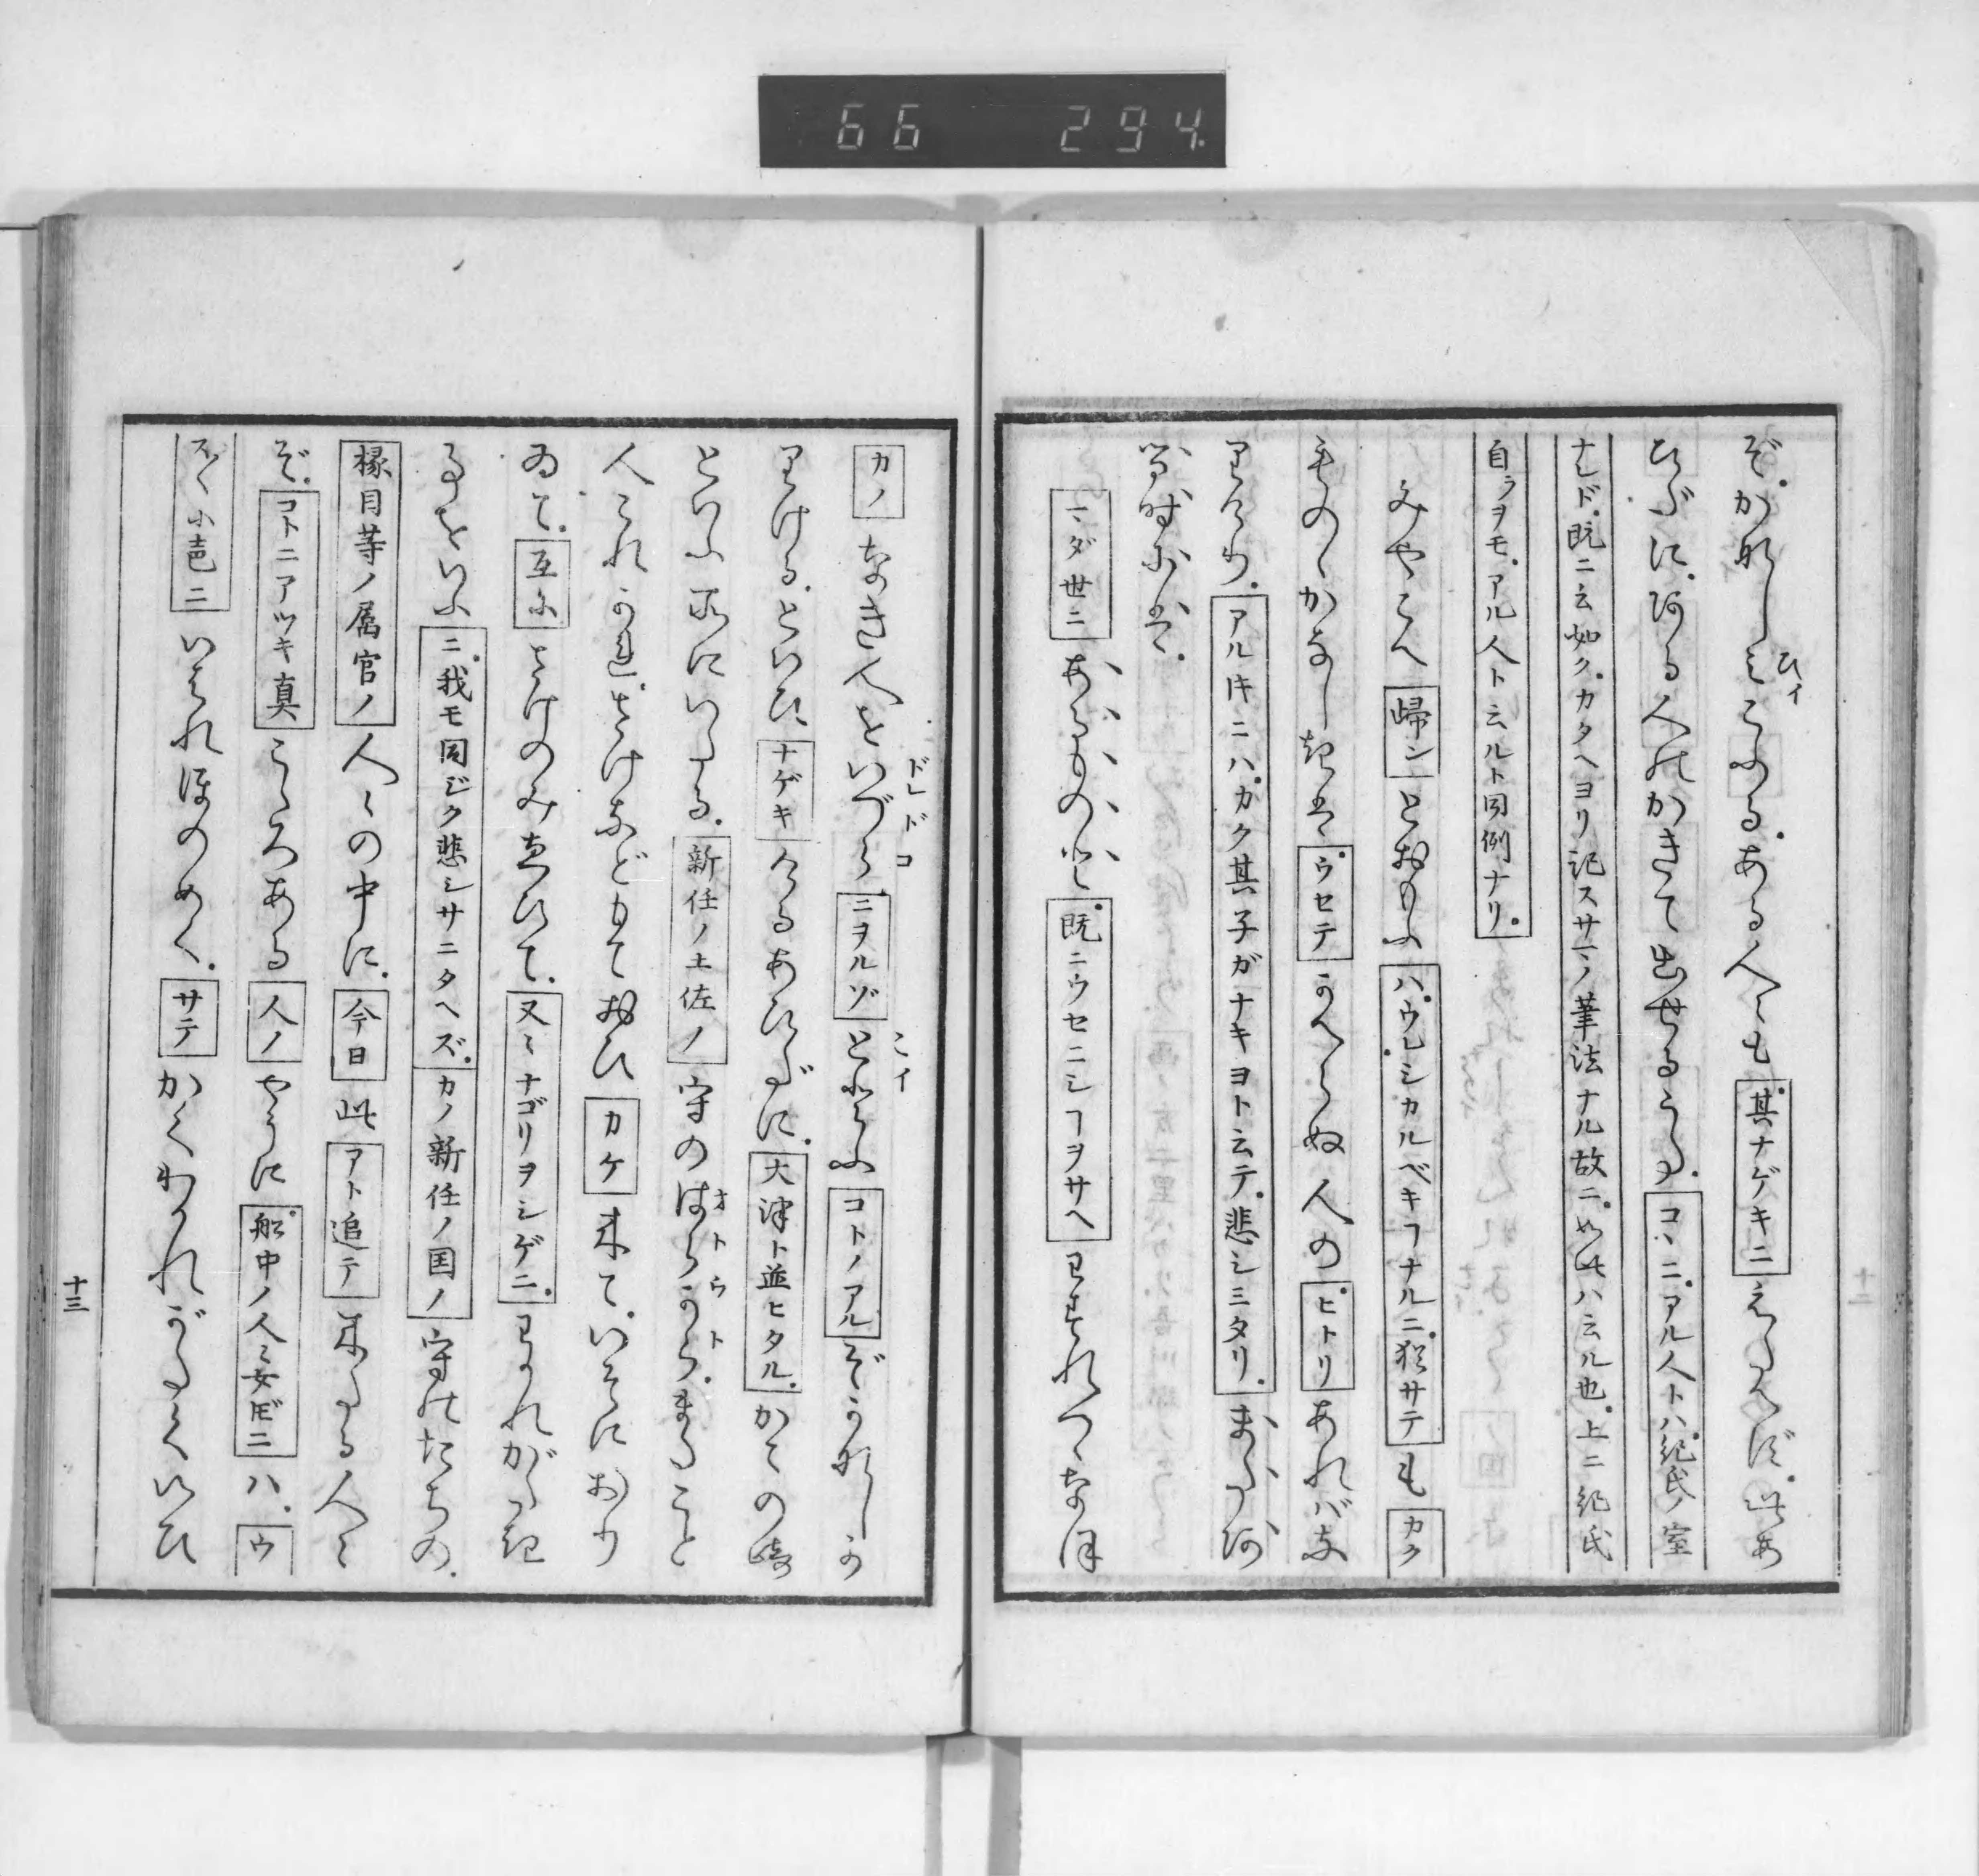 66 294.
ぞ。かなしミこふる。ある人〻も其ナゲキニえたへず。此あ
ひイ
ひだに。ある人のかきて出せるうた。コヽニ。アル人トハ。紀氏ノ室
ナレド。既ニ云如ク。カタヘヨリ記スサマノ筆法ナル故ニ。如此ハ云ル也。上ニ紀氏
自ラヲモ。アル人ト云ルト同例ナリ。
みやこへ帰ントおもふハ。ウレシカルベキヿナルニ。猶サテもカク
ものゝかなしきは。ウセテかへらぬ人の。ヒトリあればな
りけり。アルトキニハ。カク其子ガナキヨト云テ。悲シミタリ。またあ
る時には。
マダ世ニあるものと。既ニウセニシヿヲサヘわすれつゝなほ
カノなき人をいづらニヲルゾととふコトノアルぞかなしか
ドレドコ
こイ
りける。といひ。ナゲキけるあひだに。大津ト並ヒタル。かこの崎
といふ所にいたる。新任ノ土佐ノ守のはらから。またこと
オトウト
人これかれさけなどもておひカケ来て。いそにおり
ゐて。互にさけのみゑひて。又〻ナゴリヲシゲニ。わかれがたき
事をいふニ。我モ同ジク悲シサニタヘズ。カノ新任ノ国ノ守のたちの。
椽目等ノ属官ノ人〻の中に。今日此アト追テ来たる人〻
ぞ。コトニアツキ真こゝろある人ノやうに。船中ノ人〻女ドモニハ。ウ
スヽ小色ニいはれほのめく。サテかくわかれがたくいひ
十三